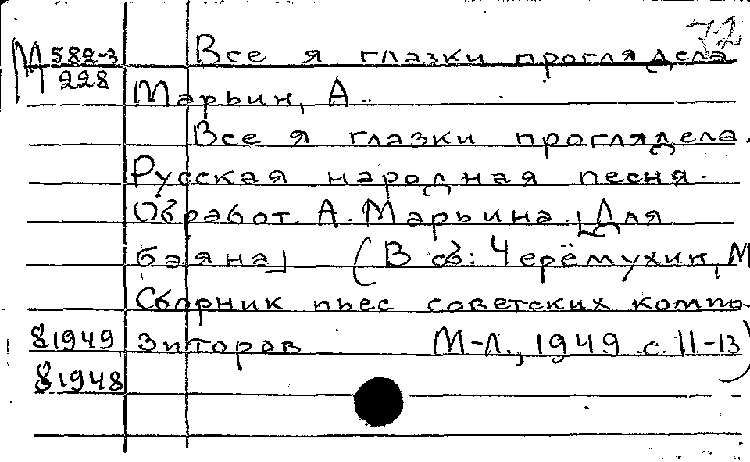 72
М 582-3 Все я глазки проглядела
228
Марьин, А.
Все я глазки проглядела.
Русская народная песня.
Обработ. А. Марьина. [Для
баяна] (В сб: Черёмухин, М
Сборник пьес советских компо-
81949 зиторов М-Л., 1949 с. 11-13)
81948